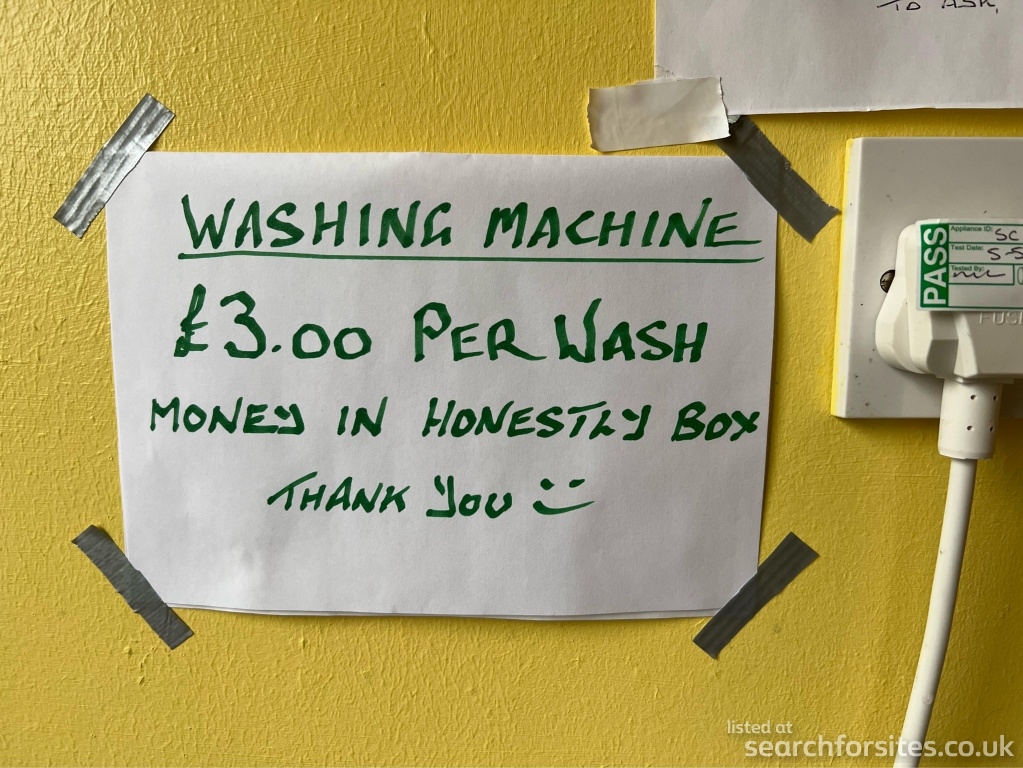 TO ASK,
WASHING MACHINE
£3.00 PER WASH
MONEY IN HONESTLY BOX
THANK YOU
PASS
Appliance ID: SC
Test Date: 5-5
Tested By:
FUS
listed at
searchforsites.co.uk